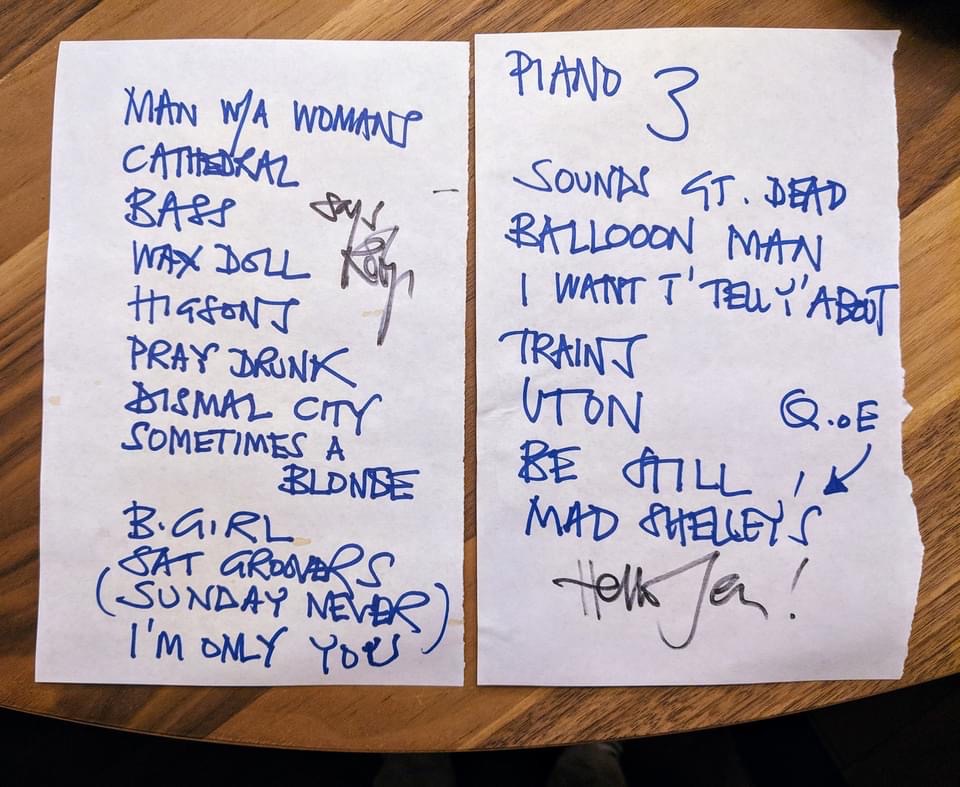 MAN W/A WOMANS
CATHEDRAL
BASS
says
Robyn
WAX DOLL
HIGSONS
PRAY DRUNK
DISMAL CITY
SOMETIMES A
BLONDE
B.GIRL
SAT GROOVERS
(SUNDAY NEVER)
I'M ONLY YOU
PIANO 3
SOUNDS GT. DEAD
BALLOOON MAN
I WANT T' TELL Y' ABOUT
TRAINS
UTON
Q.oE
BE STILL
MAD SHELLEY'S
Hello Jen!